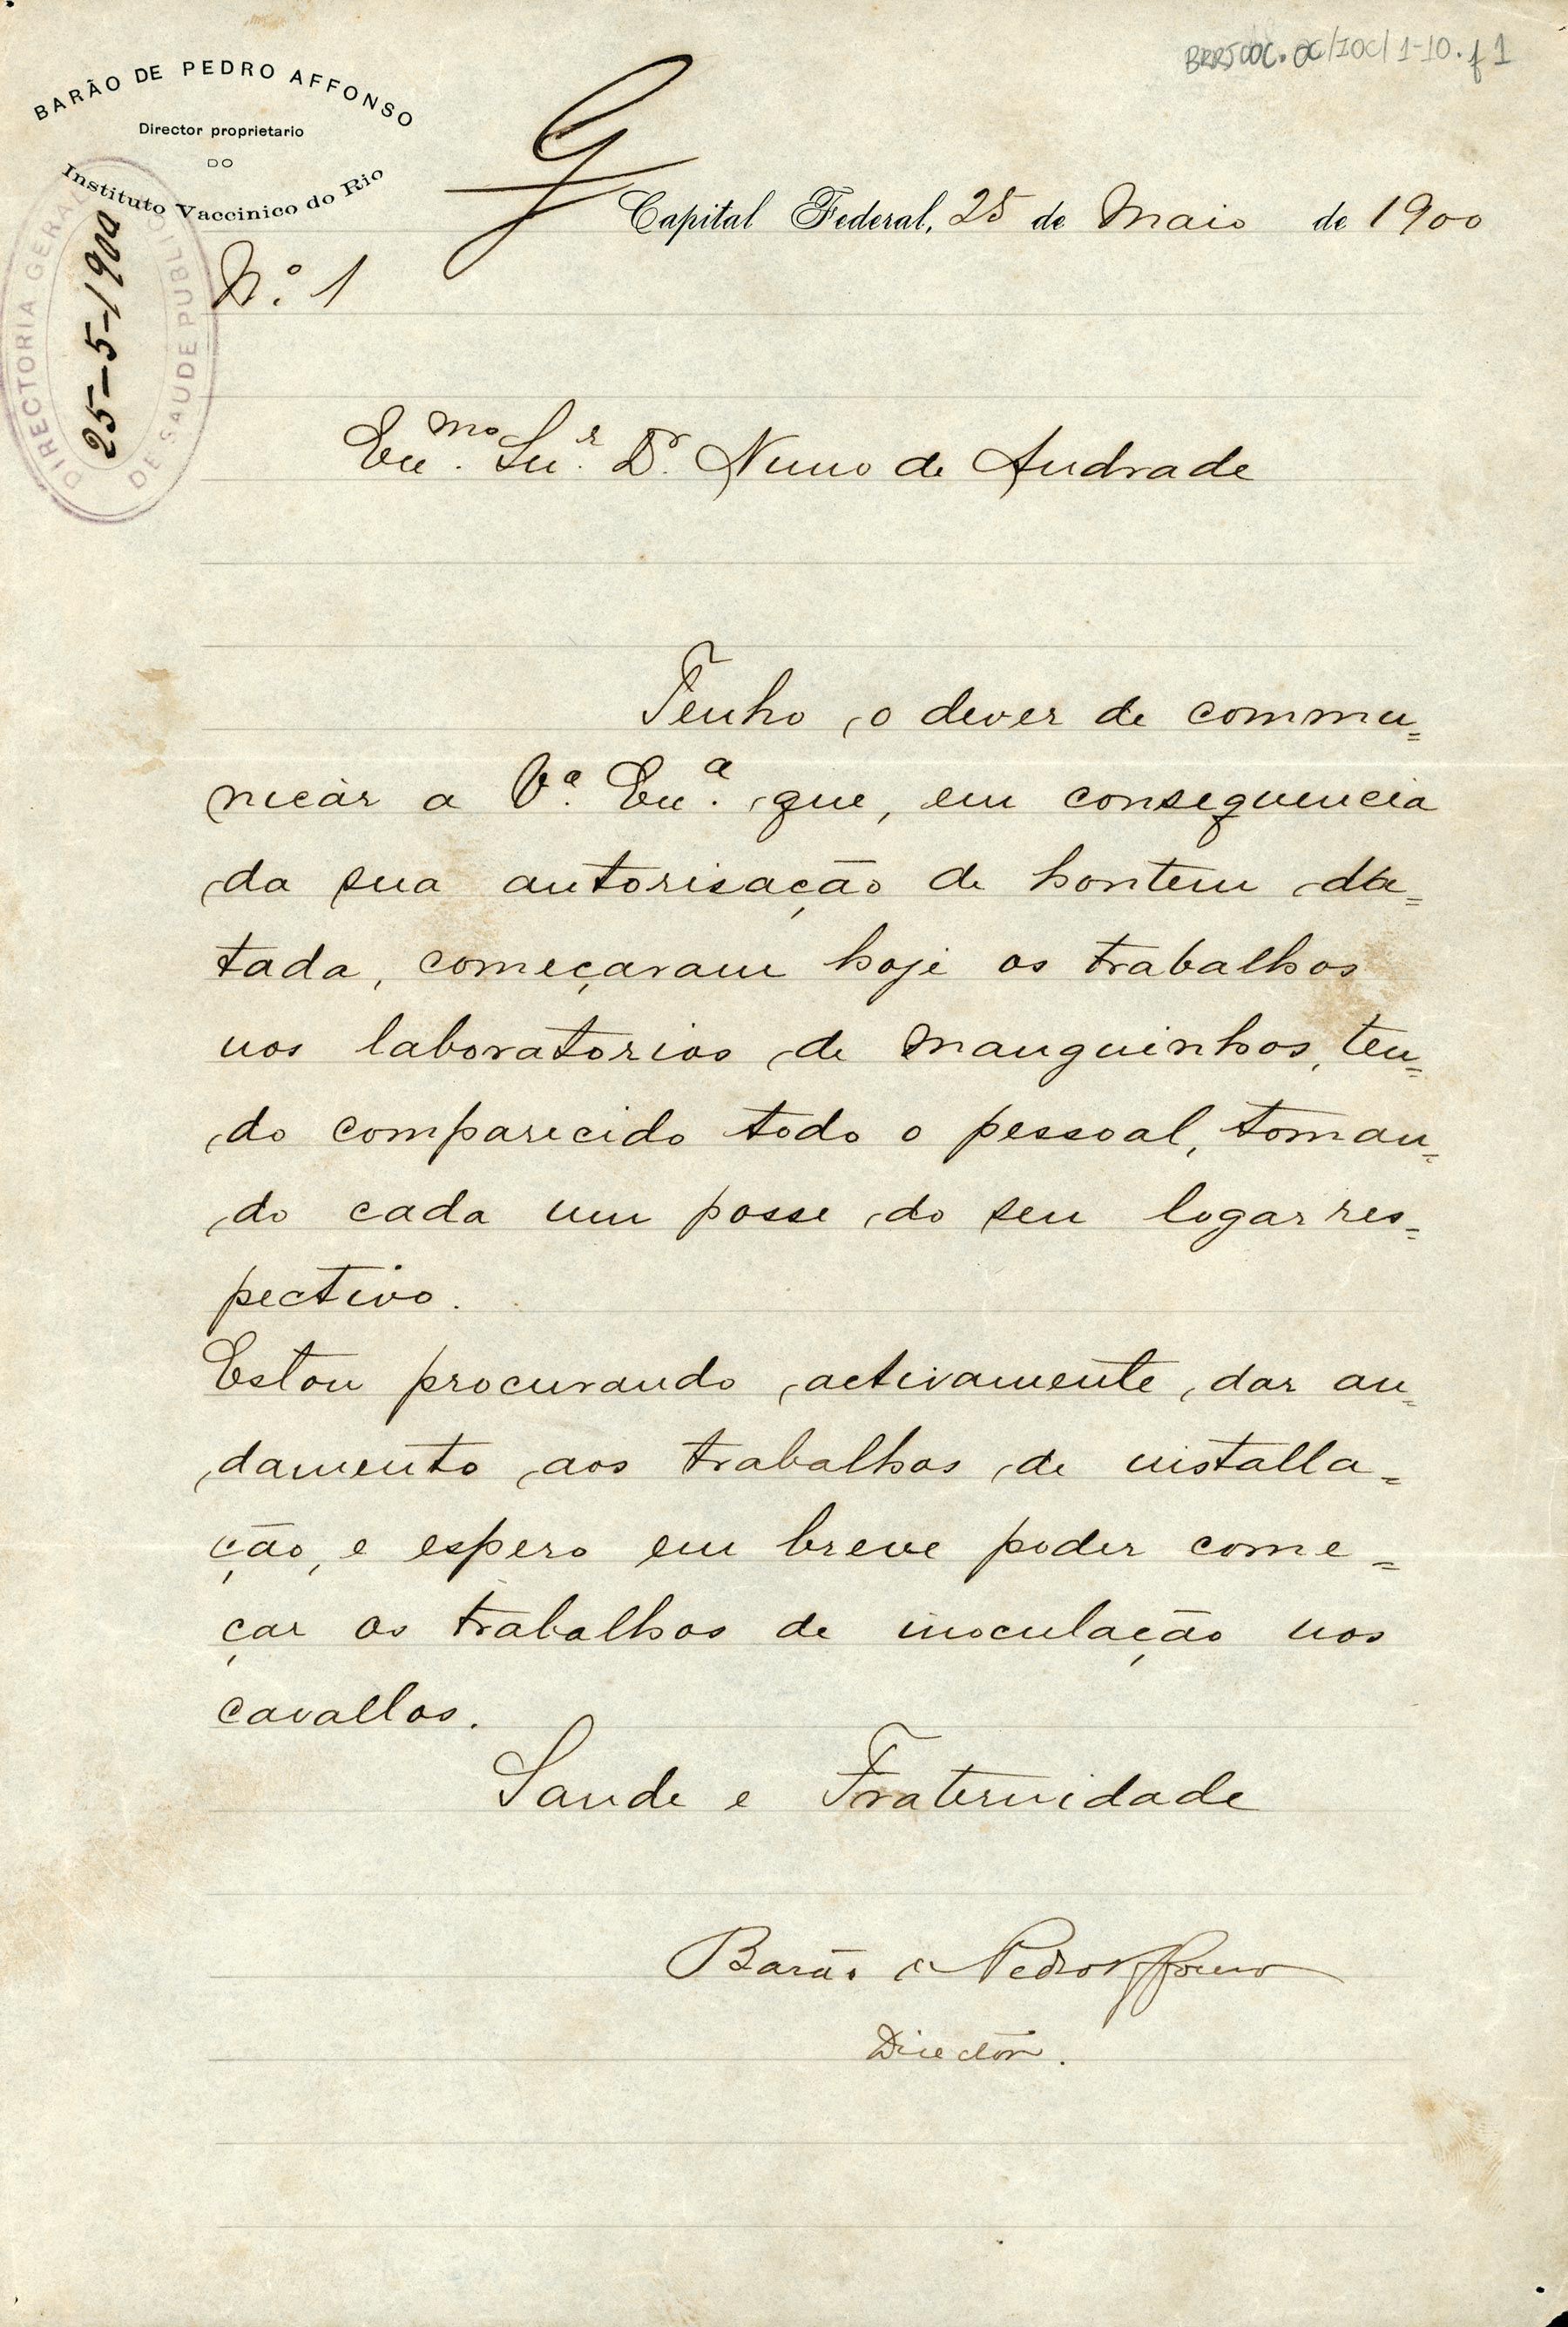 BRRJCOC.OC/IOC/1-10.f1
BARÃO DE PEDRO AFFONSO
Director proprietario
DO
Instituto Vaccinico do Rio
Capital Federal, 25 de Maio de 1900
DIRECTORIA GERAL DE SAUDE PUBLICA
25-5-1900
N.º 1
Exmo. Snr. Dr. Nuno de Andrade
Tenho o dever de commu=
nicar a Va. Exa. que, em consequencia
da sua autorisação de hontem da=
tada, começaram hoje os trabalhos
nos laboratorios de Manguinhos, ten=
do comparecido todo o pessoal, toman=
do cada um posse do seu logar res=
pectivo.
Estou procurando activamente dar an=
damento aos trabalhos de installa=
ção, e espero em breve poder come=
çar os trabalhos de inoculação nos
cavallos.
Saude e Fraternidade
Barão de Pedro Affonso
Director.